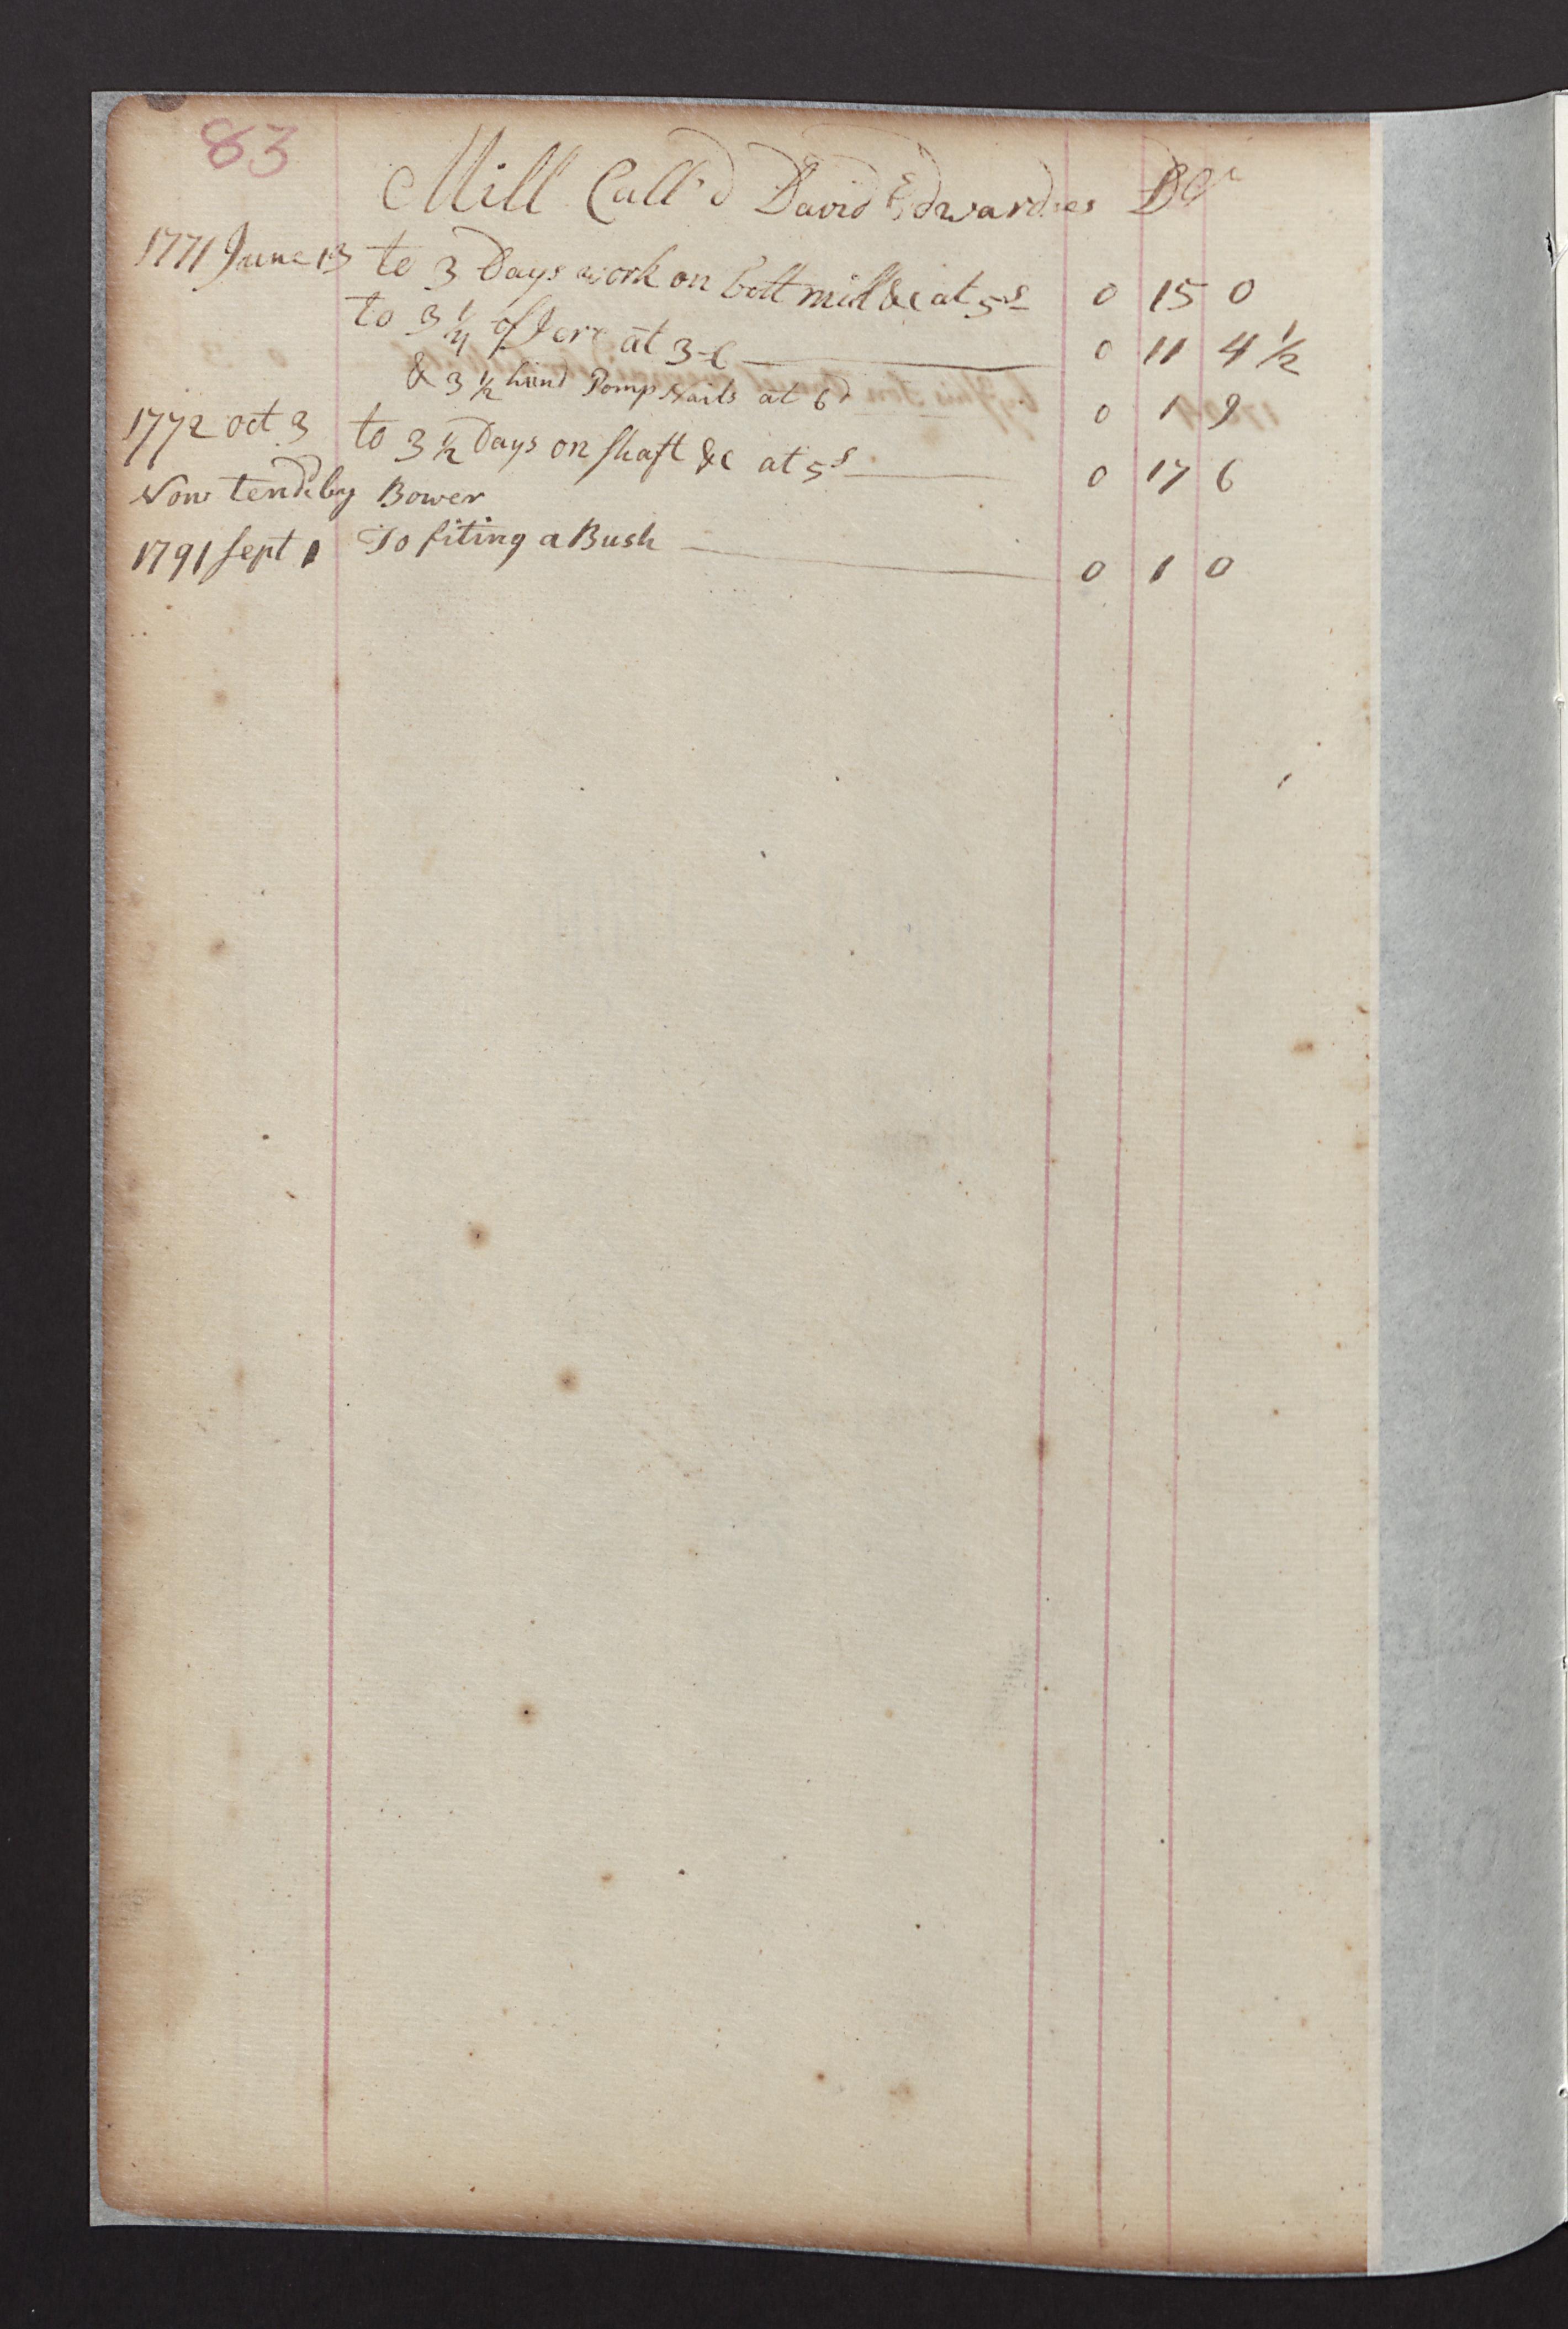 83
Mill Call'd David Edwardses Dr
1771 June 13 to 3 Days work on bolt mill &c at 5s 0 15 0
to 3 1/4 of Jere at 3-6 0 11 4 1/2
& 3 1/2 hund Pomp Nails at 6d 0 1 9
1772 oct 3 to 3 1/2 Days on shaft &c at 5s 0 17 6
Now tend by Bower
1791 sept 1 To fiting a Bush 0 1 0